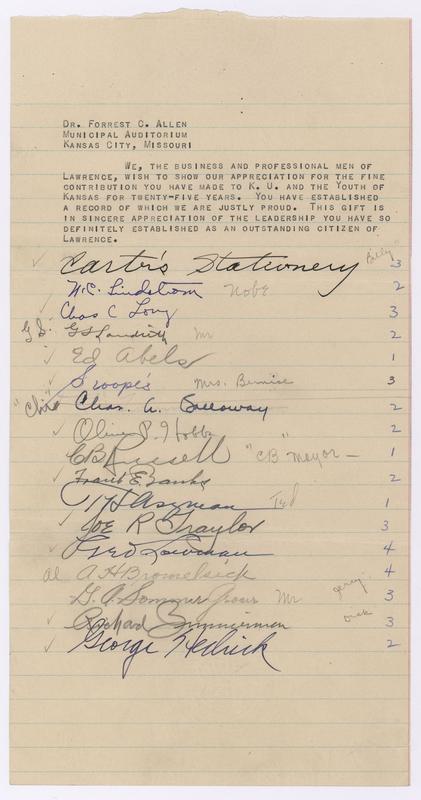 DR. FORREST C. ALLEN
MUNICIPAL AUDITORIUM
KANSAS CITY, MISSOURI
WE, THE BUSINESS AND PROFESSIONAL MEN OF
LAWRENCE, WISH TO SHOW OUR APPRECIATION FOR THE FINE
CONTRIBUTION YOU HAVE MADE TO K. U. AND THE YOUTH OF
KANSAS FOR TWENTY-FIVE YEARS. YOU HAVE ESTABLISHED
A RECORD OF WHICH WE ARE JUSTLY PROUD. THIS GIFT IS
IN SINCERE APPRECIATION OF THE LEADERSHIP YOU HAVE SO
DEFINITELY ESTABLISHED AS AN OUTSTANDING CITIZEN OF
LAWRENCE.
Carter's Stationery 3
W.C. Lindstrom 2
Chas C Long 3
Mr 2
Ed Abels 1
Mrs. Bernice 3
Chas. A. 2
Oliver P. Hobbs 2
CB Russell "CB" Mayor — 1
Frank E. Banks 2
Ted 1
Joe R Traylor 3
Fred 4
al A H Bromelsick 4
G. A. Mr 3
Richard Zimmerman Dick 3
George Hedrick 2